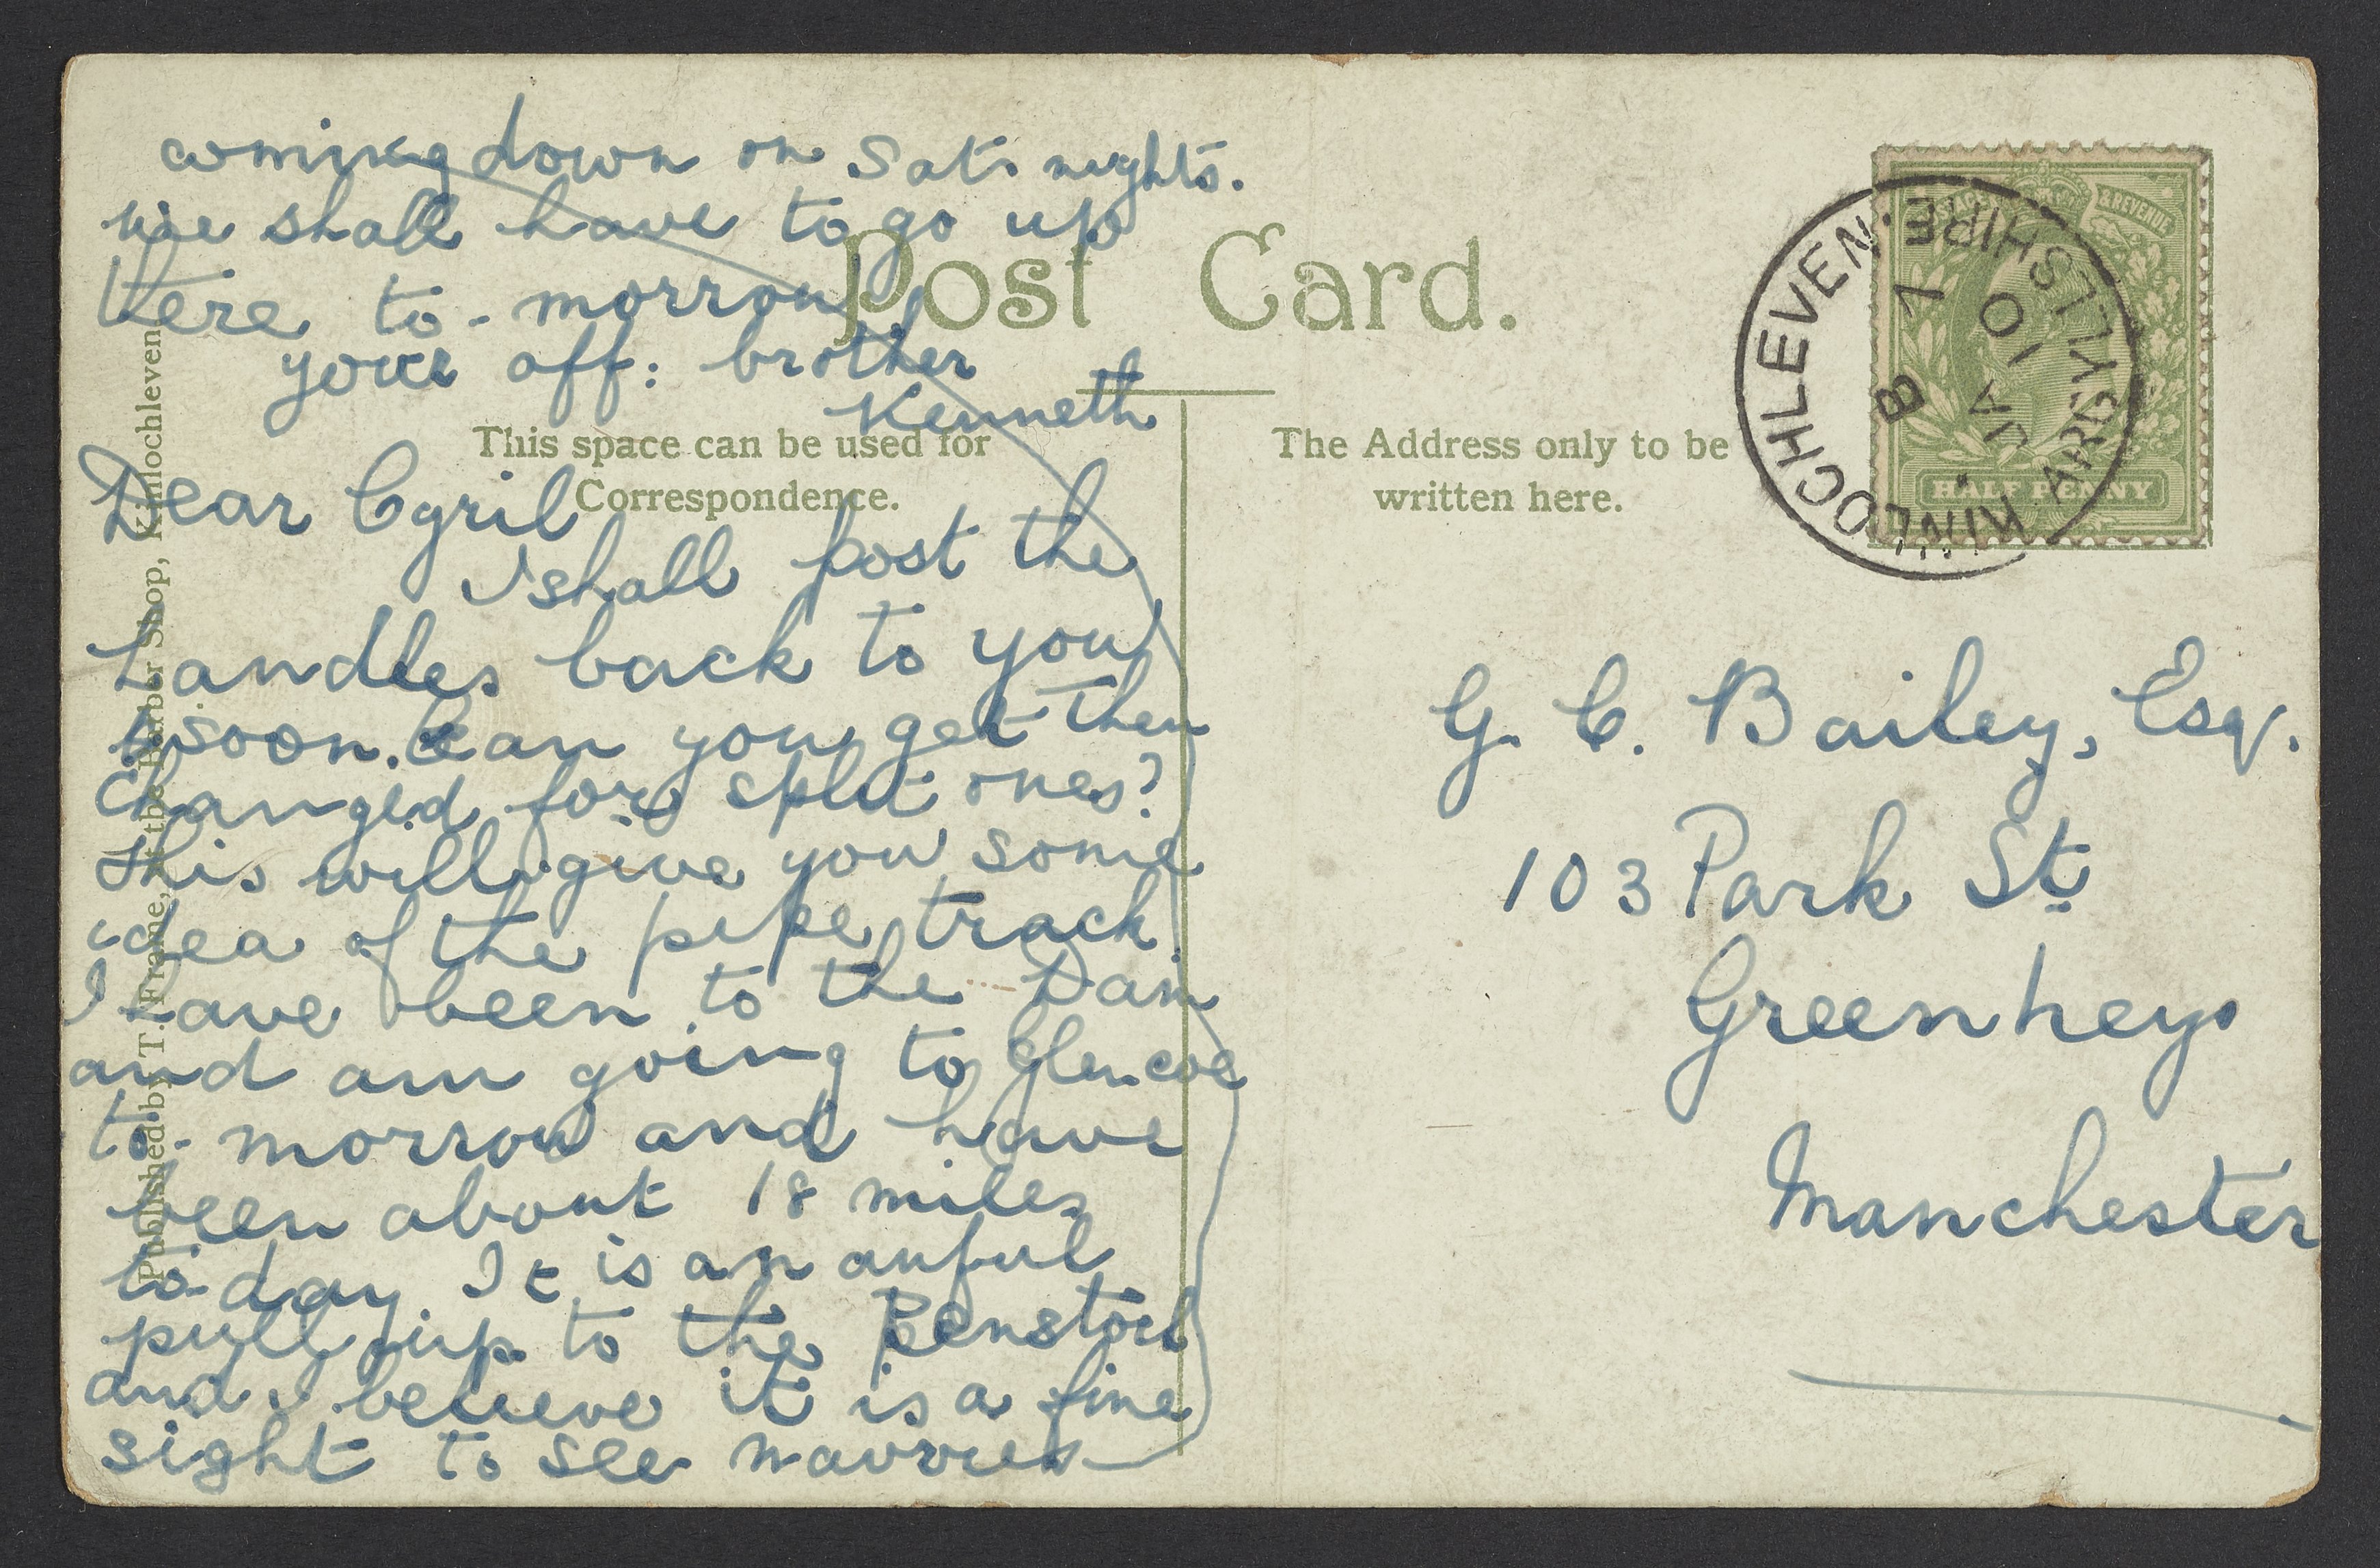 coming down on Sat. nights.
we shall have to go up
there to-morrow
your aff: brother
Kenneth
Post Card.
This space can be used for
Correspondence.
The Address only to be
written here.
Dear Cyril
I shall post the
Landles back to you
soon. Can you get them
changed for split ones?
This will give you some
idea of the pipe track.
I have been to the Dam
and am going to Glencoe
to-morrow and have
been about 18 miles
to-day. It is an awful
pull up to the Penstock
and I believe it is a fine
sight to see navvies
G. C. Bailey, Esq.
103 Park St.
Greenheys
Manchester
Published by T. Frame, at the Barber Shop, Kinlochleven.
KINLOCHLEVEN · ARGYLLSHIRE ·
B
JA
10
POSTAGE & REVENUE
HALF PENNY